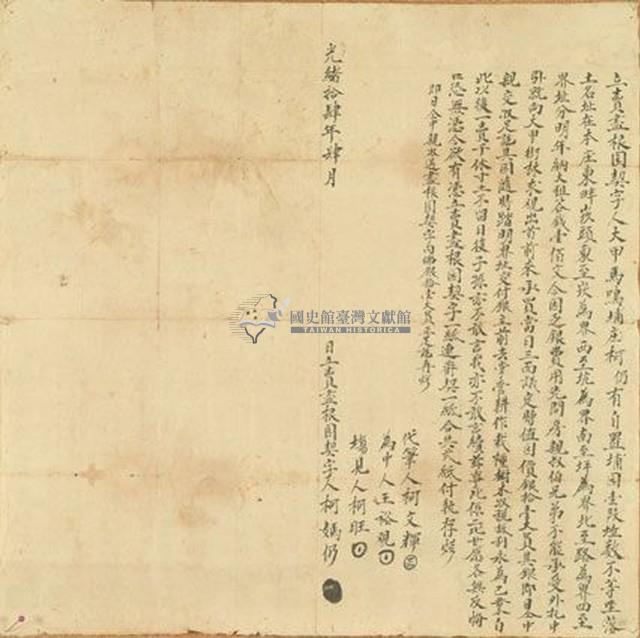 立賣盡根園契字人大甲馬鳴埔庄柯 仍有自置埔園壹段坵數不等坐落
土名址在本庄東畔崁頭東至崁為界西至坑為界南至坪為界北至路為界四至
界址分明年納大租谷錢壹佰文今因乏銀費用先問房親叔伯兄弟不能承受外托中
引就向大甲街林 出首前來承買當日三面議定時值園價銀拾壹大員其銀即日仝中
親交收足訖其園隨時踏明界址定付銀主前去掌管耕作栽種樹木 收利永為己業自
此以後一賣千休寸土不留日後子孫亦不敢言找亦不敢言贖 事此係二比甘愿各無反悔
口恐無憑今欲有憑立賣盡根園契字一紙連 契一紙合共貳紙付執存炤
即日仝中親收過盡根園契字內佛銀拾壹大員完足訖再炤
代筆人柯文輝
為中人王裕硯
塲見人柯旺
光緒拾肆年肆月 日立賣盡根園契字人柯媽仍
國史館臺灣文獻館
TAIWAN HISTORICA